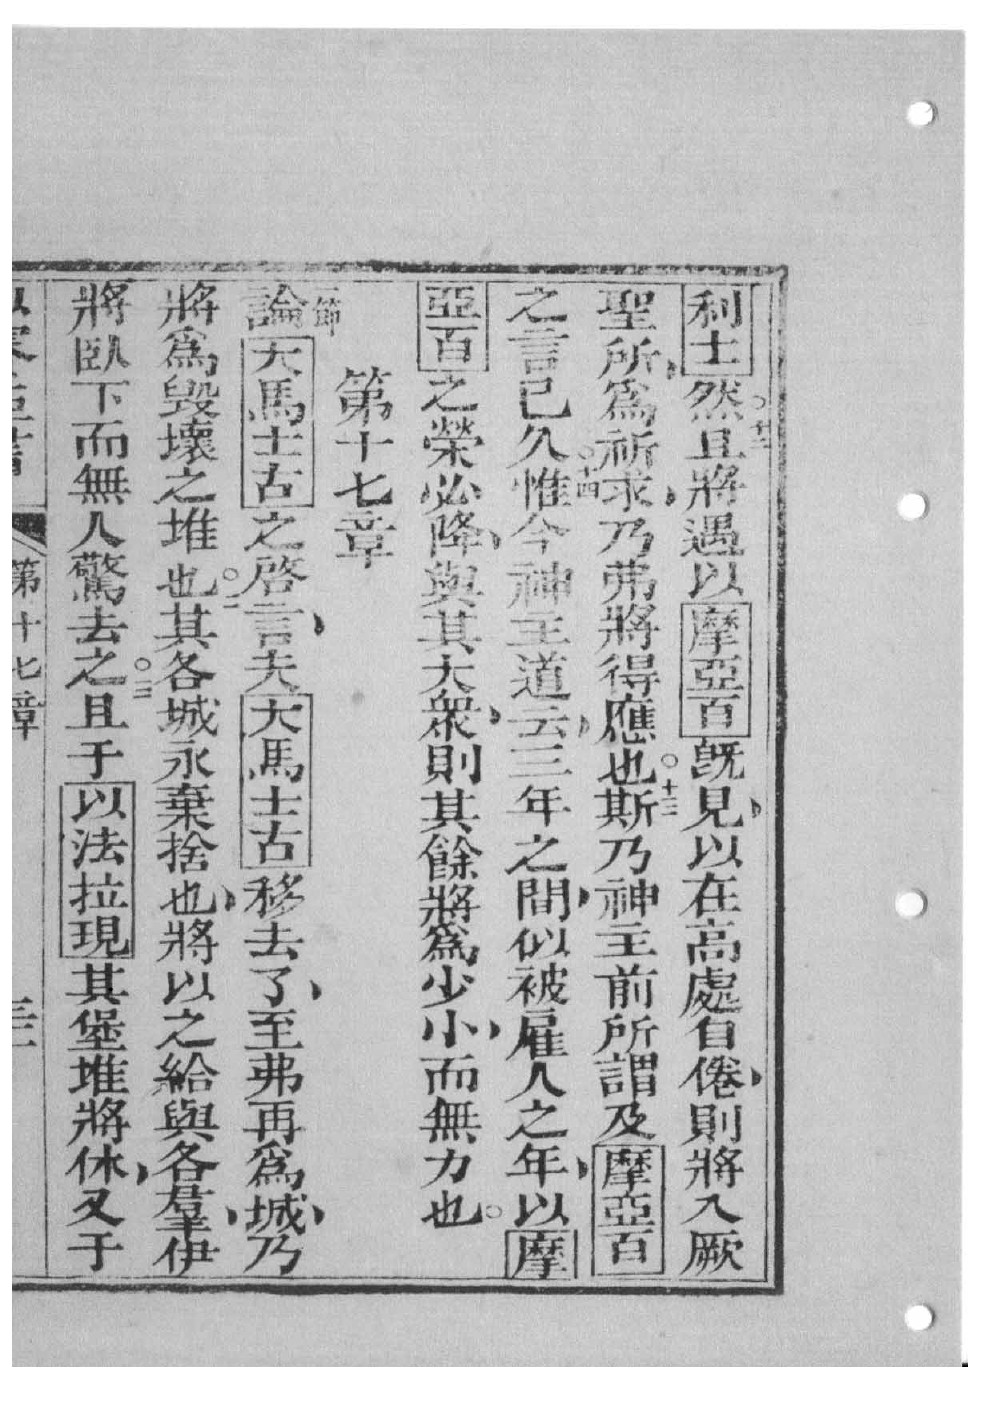 利士然且將遇以摩亞百旣見以在高處自倦則將入厥
十二
聖所爲祈求乃弗將得應也斯乃神主前所謂及摩亞百
十三
之言已久惟今神主道云三年之間似被雇人之年以摩
十四
亞百之榮必降與其大衆則其餘將爲少小而無力也
第十七章
一節
論大馬士古之啓言夫大馬士古移去了至弗再爲城乃
將爲毀壞之堆也其各城永棄捨也將以之給與各羣伊
二
將臥下而無人驚去之且于以法拉現其堡堆將休又于
三
第十七章
三